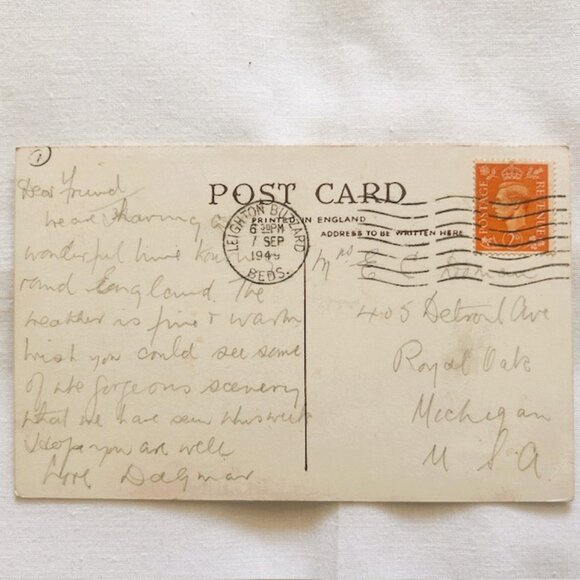 1
Dear Friend
we are having a
wonderful time touring
round England. The
weather is fine & warm
wish you could see some
of the gorgeous scenery
what we have seen this week
I Hope you are well
Love Dagmar
POST CARD
PRINTED IN ENGLAND
ADDRESS TO BE WRITTEN HERE
LEIGHTON BUZZARD
6 PM
7 SEP
1949
BEDS.
POSTAGE
REVENUE
2D
Mrs E C
405 Detroit Ave
Royal Oak
Michigan
U S A.